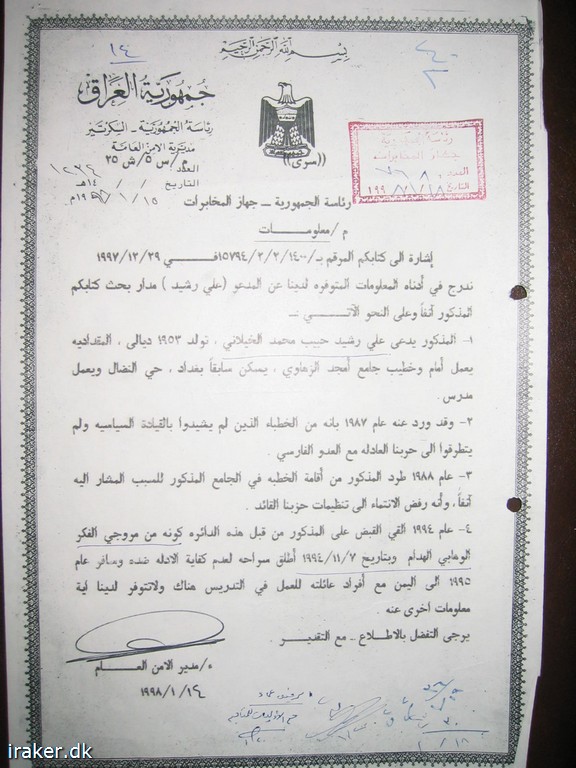 ١٤
بسم الله الرحمن الرحيم
جمهورية العراق
رئاسة الجمهورية - السكرتير
مديرية الامن العامة
م/س ٥/ش ٢٥
((سري))
العدد
التاريخ / / ١٤هـ
١٥/١/١٩٩٨م
رئاسة الجمهورية
جهاز المخابرات
العدد
التاريخ ١٨/١/١٩٩
رئاسة الجمهورية - جهاز المخابرات
م/ معلومـــات
اشارة الى كتابكم المرقم بـ/١٥٧٩٤/٢/٢/١٤٠٠ في ١٩٩٧/١٢/٢٩
ندرج في أدناه المعلومات المتوفره لدينا عن المدعو (علي رشيد) مدار بحث كتابكم
المذكور آنفاً وعلى النحو الآتـــي :ـ
١- المذكور يدعى علي رشيد حبيب محمد الخيلاني ، تولد ١٩٥٣ ديالى ، المقداديه
يعمل أمام وخطيب جامع أمجد الزهاوي ، يسكن سابقاً بغداد ، حي النضال ويعمل
مدرس .
٢- وقد ورد عنه عام ١٩٨٧ بانه من الخطباء الذين لم يشيدوا بالقيادة السياسيه ولم
يتطرقوا الى حربنا العادله مع العدو الفارسي .
٣- عام ١٩٨٨ طرد المذكور من أقامة الخطبه في الجامع المذكور للسبب المشار اليه
آنفاً ، وأنه رفض الانتماء الى تنظيمات حزبنا القائد .
٤- عام ١٩٩٤ القي القبض على المذكور من قبل هذه الدائره كونه من مروجي الفكر
الوهابي الهدام وبتاريخ ١٩٩٤/١١/٧ أطلق سراحه لعدم كفاية الادله ضده وسافر عام
١٩٩٥ الى اليمن مع أفراد عائلته للعمل في التدريس هناك ولاتتوفر لدينا اية
معلومات أخرى عنه .
يرجى التفضل بالاطلاع - مع التقديـــر .
ء/ مدير الامن العـــام
١٩٩٨/١/١٤
iraker.dk